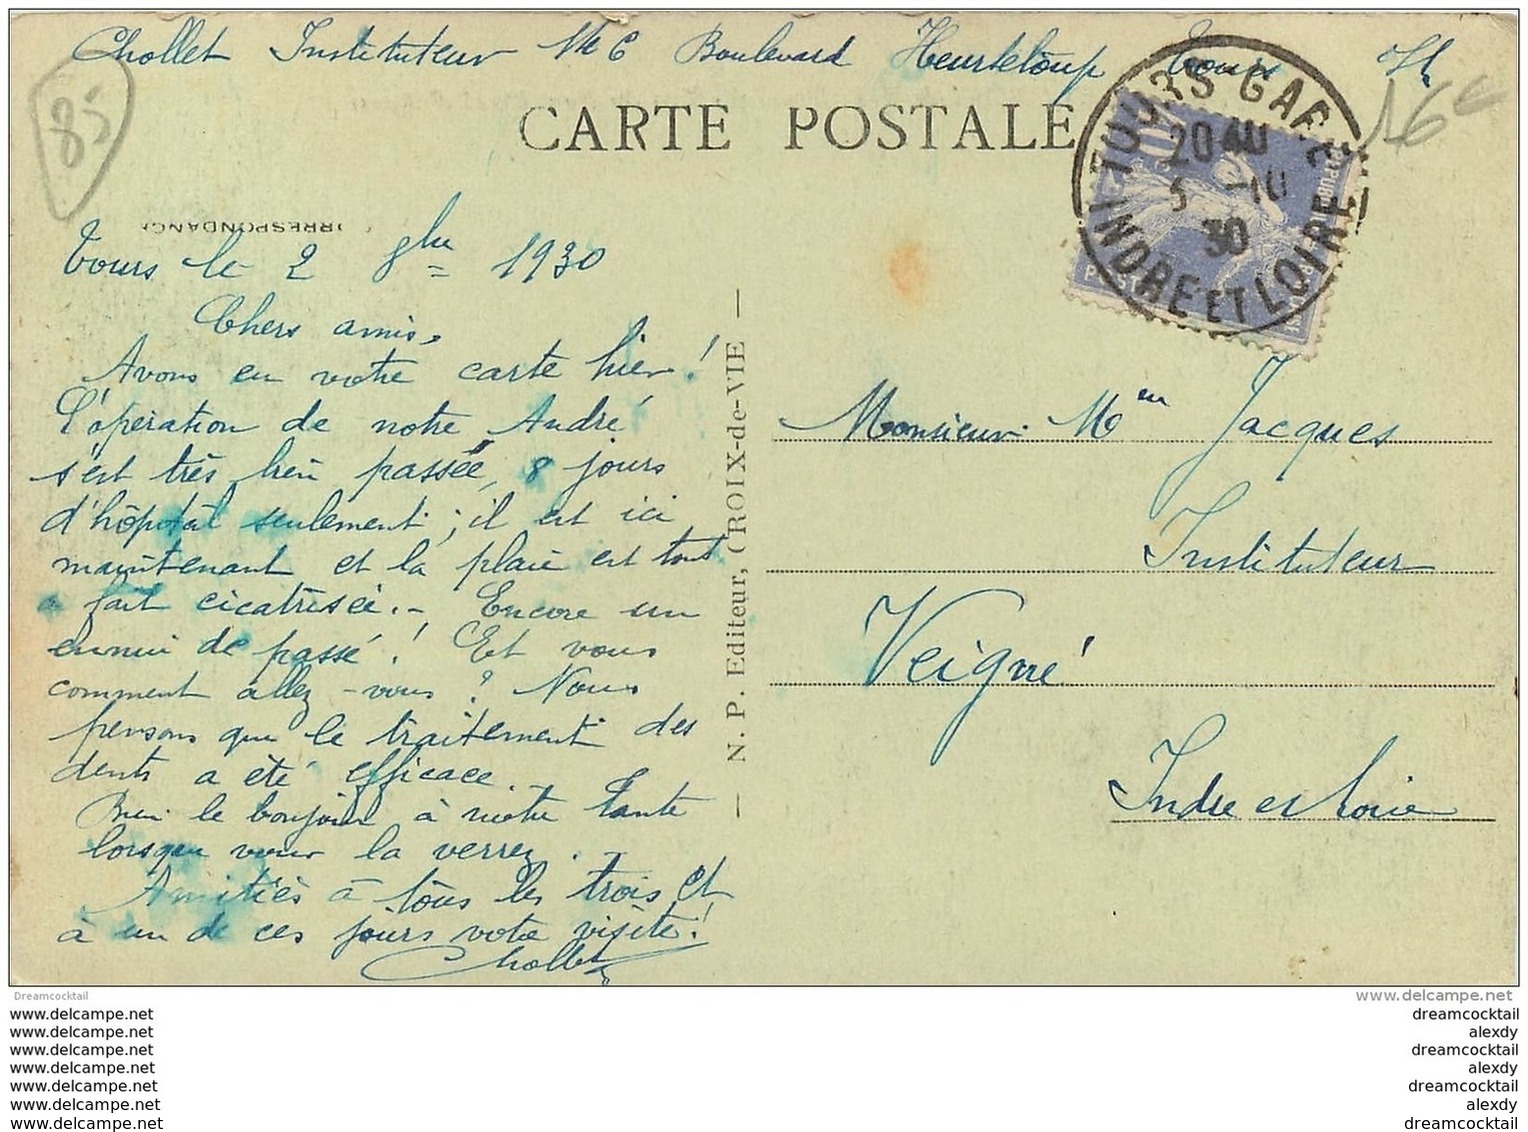 Chollet Instituteur Boulevard Heurteloup Tours
85
16
CARTE POSTALE
TOURS-GARE
20
5 -10
30
INDRE ET LOIRE
Tours le 2 8bre 1930
Chers amis,
Avons eu votre carte hier!
L'opération de notre André
s'est très bien passée, 8 jours
d'hôpital seulement; il est ici
maintenant et la plaie est tout
à fait cicatrisée.- Encore un
ennui de passé! Et vous
comment allez-vous? Nous
pensons que le traitement des
dents a été efficace
Bien le bonjour à votre tante
lorsque vous la verrez.
Amitiés à tous les trois et
à un de ces jours votre visite!
Chollet
— N. P. Editeur, CROIX-de-VIE —
Monsieur Mme Jacques
Instituteur
Veigné
Indre et Loire
Dreamcocktail
www.delcampe.net
www.delcampe.net
www.delcampe.net
www.delcampe.net
www.delcampe.net
www.delcampe.net
www.delcampe.net
www.delcampe.net
dreamcocktail
alexdy
dreamcocktail
alexdy
dreamcocktail
alexdy
dreamcocktail